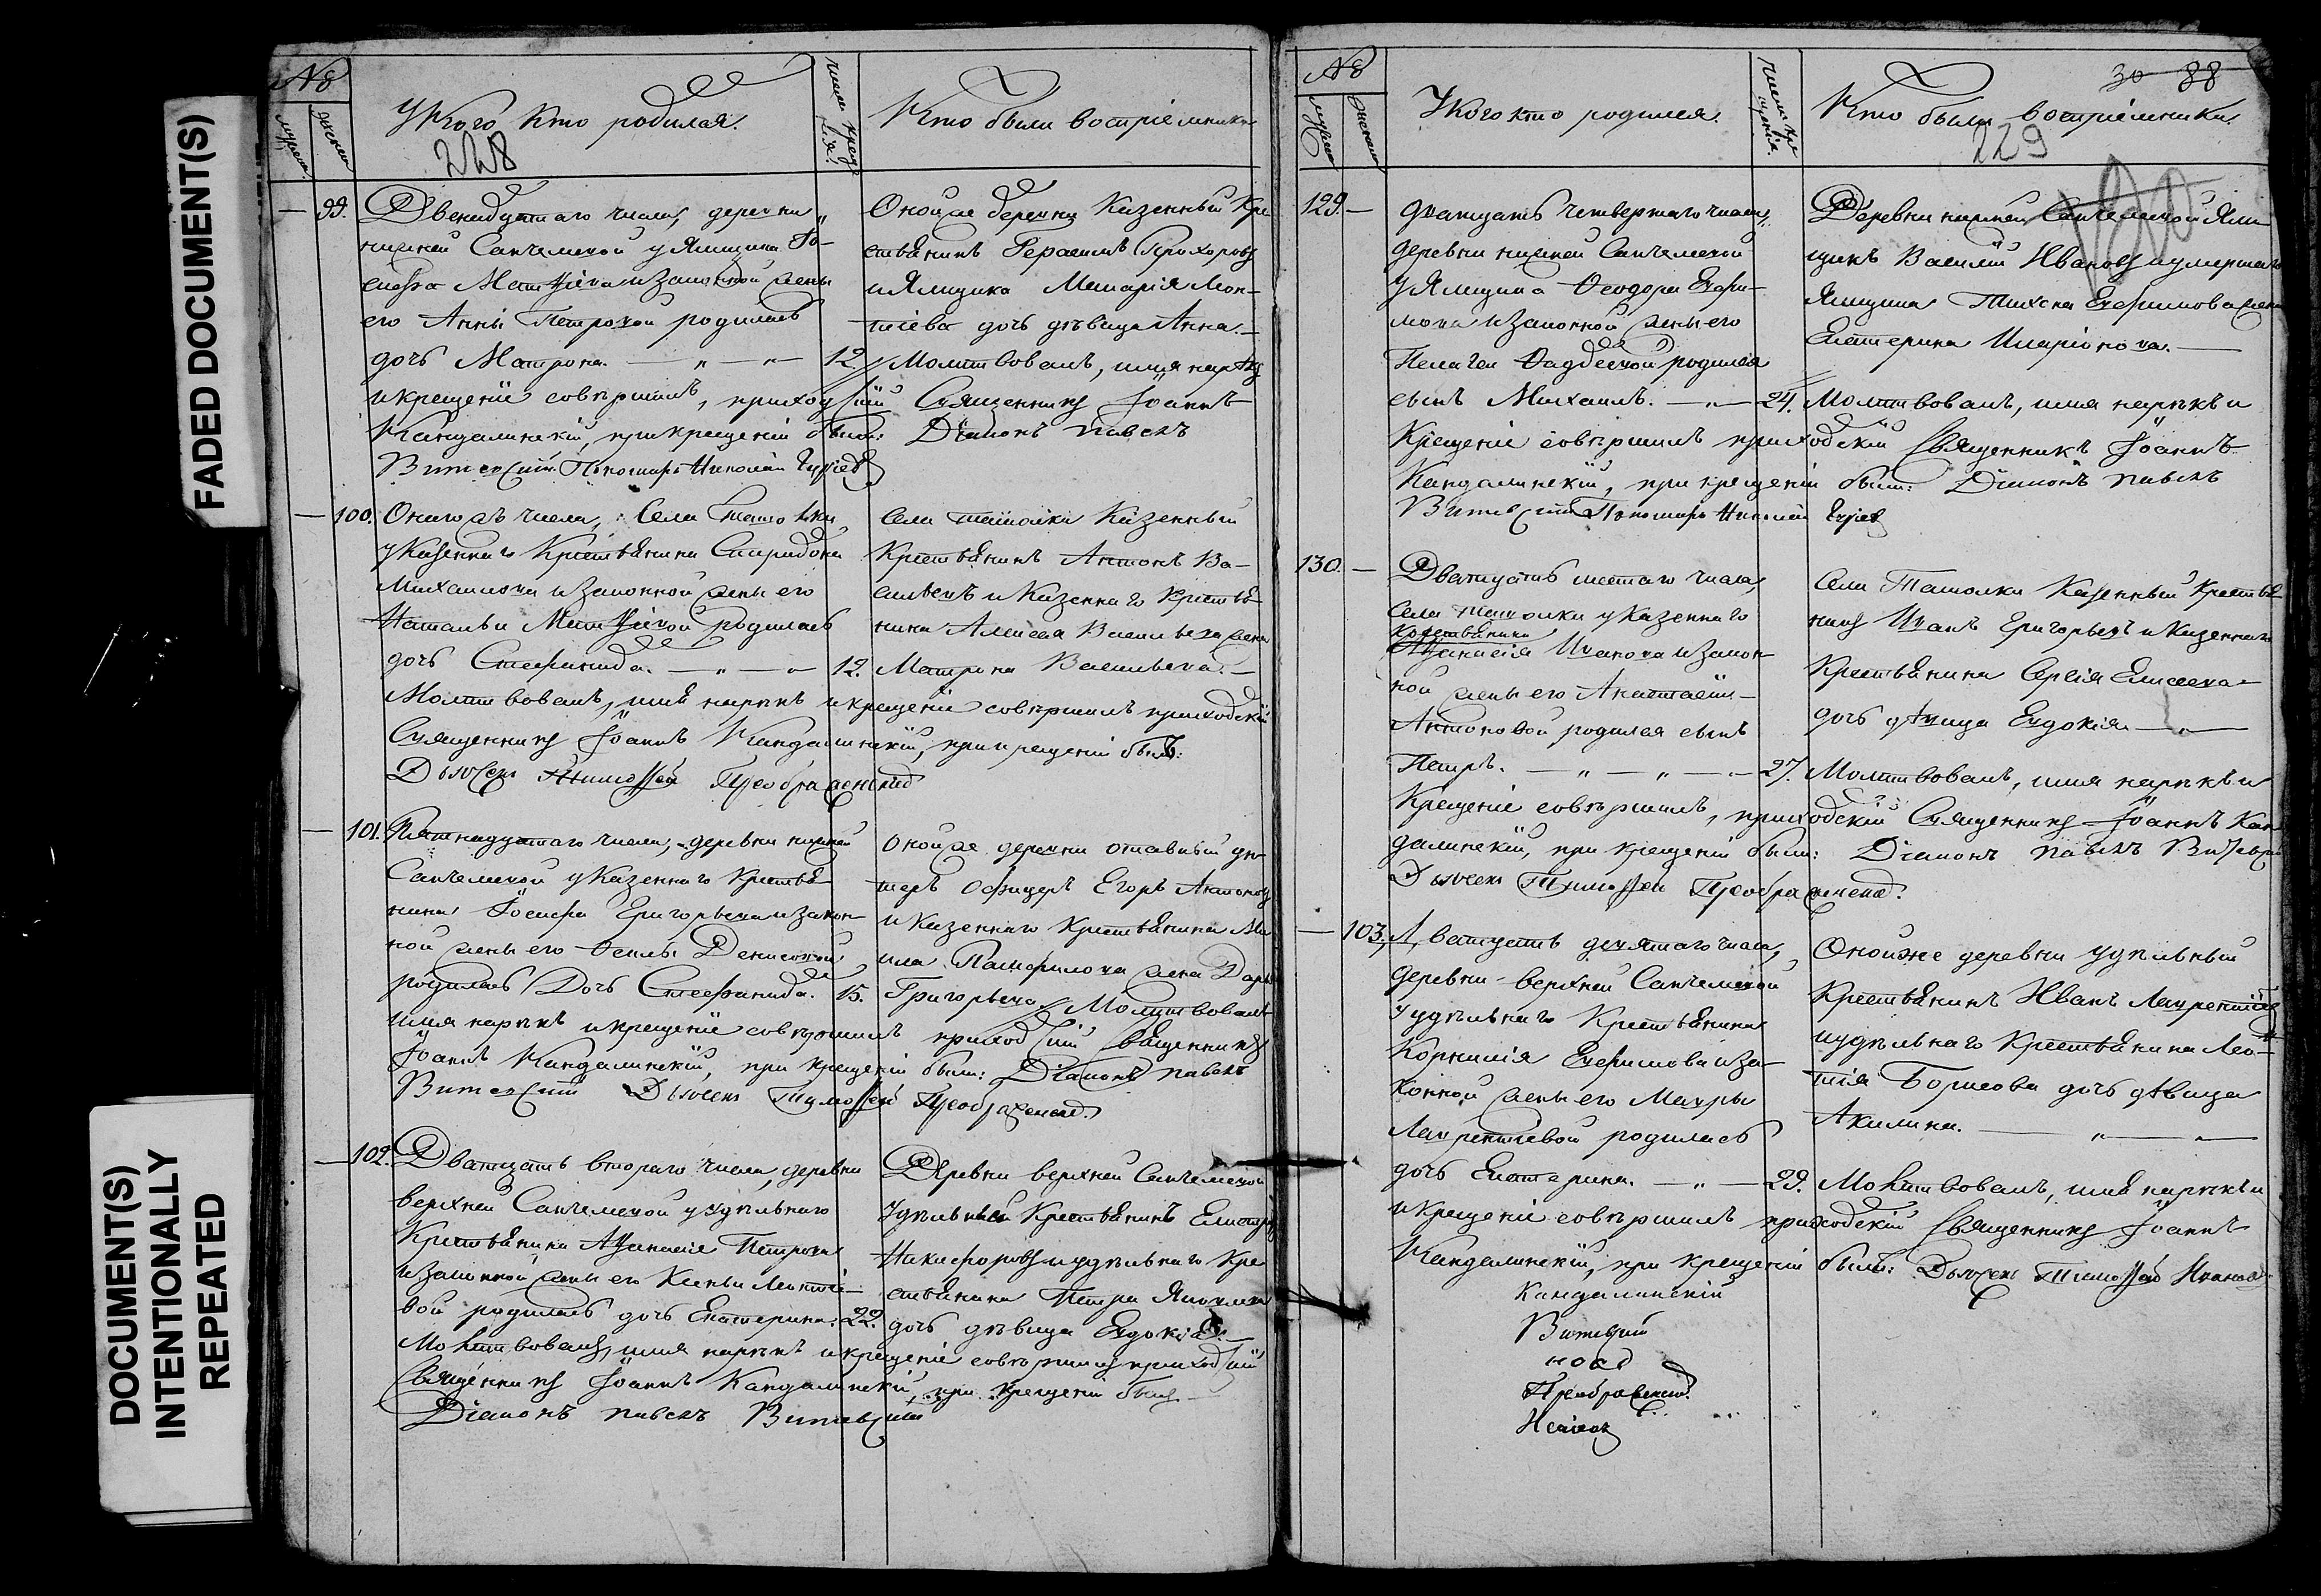 FADED DOCUMENT(S)
DOCUMENT(S)
INTENTIONALLY
REPEATED
№
мужеска
женска
У Кого Кто родился.
228
Кто были восприемники
99.
Двенадцатаго числа, деревни
нижней Санчелеевой у Ямщика Іо-
сифа Матѳіева и законной жены
его Анны Петровой родилась
дочь Матрона. — „ — „ — 12.
Оной же деревни Казенный Кре
стьянинъ Герасимъ Прохоровъ
и Ямщика
дочь дѣвица Анна.—
Молитвовалъ, имя нарѣкъ
и крещеніе совѣршилъ, приходскій Священникъ Іоаннъ
Кандалинскій, при крещеніи были: Діаконъ Павелъ
Витевскій Пономарь Николай
100.
Онаго жъ числа, Села Ташолки
у Казеннаго Крестьянина Спиридона
Михаилова и законной жены его
Натальи Матѳіевой родилась
дочь Стефанида. — „ — „ — 12.
Села Ташолки Казенный
Крестьянинъ Антонъ Ва-
сильевъ и Казеннаго Крестья-
нина Алексея Васильева жена
Матрона Васильева.—
Молитвовалъ, имя нарѣкъ и крещеніе совѣршилъ приходскій
Священникъ Іоаннъ Кандалинскій, при крещеніи былъ:
Дьячекъ Тимоѳей Преображенскій
101.
Пятнадцатаго числа, деревни нижней
Санчелеевой у Казеннаго Крестья-
нина Іосифа Григорьева и закон-
ной жены его Ѳеклы Денисовой
родилась Дочь Стефанида. 15.
Оной же деревни отставный ун-
теръ Офицеръ Егоръ Антоновъ
и Казеннаго Крестьянина Ми
Памфилова жена Дарья
Григорьева Молитвовалъ
имя нарѣкъ и крещеніе совѣршилъ приходскій Священникъ
Іоаннъ Кандалинскій, при крещеніи были: Діаконъ Павелъ
Витевскій Дьячекъ Тимоѳей Преображенскій
102.
Дватцать втораго числа, деревни
верхней Санчелеевой у удѣльнаго
Крестьянина Аѳанасія Петрова
и законной жены его Ксеньи Леонтіе-
вой родилась дочь Екатерина. 22.
Деревни верхней Санчелеевой
удѣльный Крестьянинъ
Никифоровъ и удѣльнаго Кре
стьянина Петра Яковлева
дочь дѣвица Евдокія.
Молитвовалъ, имя нарѣкъ и крещеніе совѣршилъ приходскій
Священникъ Іоаннъ Кандалинскій, при крещеніи былъ
Діаконъ Павелъ Витевскій
№
мужеска
женска
У Кого кто родился.
Кто были восприемники
30 88
229
129.
дватцать четвертаго числа,
деревни нижней Санчелеевой
у Ямщика Ѳеодора Ефи-
мова и законной жены его
Пелагеи Фадеевой родился
сынъ Михаилъ. — „ — 24.
Деревни нижней Санчелеевой Ям
щикъ Василій Ивановъ и умершаго
Ямщика Тихона Ефимова жена
Екатерина Иларіонова.—
Молитвовалъ, имя нарѣкъ и
Крещеніе совѣршилъ приходскій Священникъ Іоаннъ
Кандалинскій, при крещеніи были: Діаконъ Павелъ
Витевскій Пономарь Николай
130.
Дватцать шестаго числа,
Села Ташолки у Казеннаго
Крестьянина
Аѳанасія Иванова и закон
ной жены его Анастасіи
Антоновой родился сынъ
Петръ. — „ — „ — 27.
Села Ташолки Казенный Крестья-
нинъ Иванъ Григорьевъ и Казеннаго
Крестьянина Сергія Елисеева
дочь дѣвица Евдокія — „ —
Молитвовалъ, имя нарѣкъ и
Крещеніе совѣршилъ, приходскій Священникъ Іоаннъ Кан
далинскій, при крещеніи были: Діаконъ Павелъ Витевскій
Дьячекъ Тимоѳей Преображенскій.
103.
Дватцать девятаго числа,
деревни верхней Санчелеевой
у удѣльнаго Крестьянина
Корнилія Ефимова и за-
конной жены его Мавры
Лаврентьевой родилась
дочь Екатерина. — „ — 29.
Оной же деревни удѣльный
Крестьянинъ Иванъ Лаврентіевъ
и удѣльнаго Крестьянина Леон-
тія Борисова дочь дѣвица
Акилина. — „ —
Молитвовалъ, имя нарѣкъ и
и крещеніе совѣршилъ приходскій Священникъ Іоаннъ
Кандалинскій, при крещеніи былъ: Дьячекъ Тимоѳей
Кандалинскій
Витевскій
Преображенскій